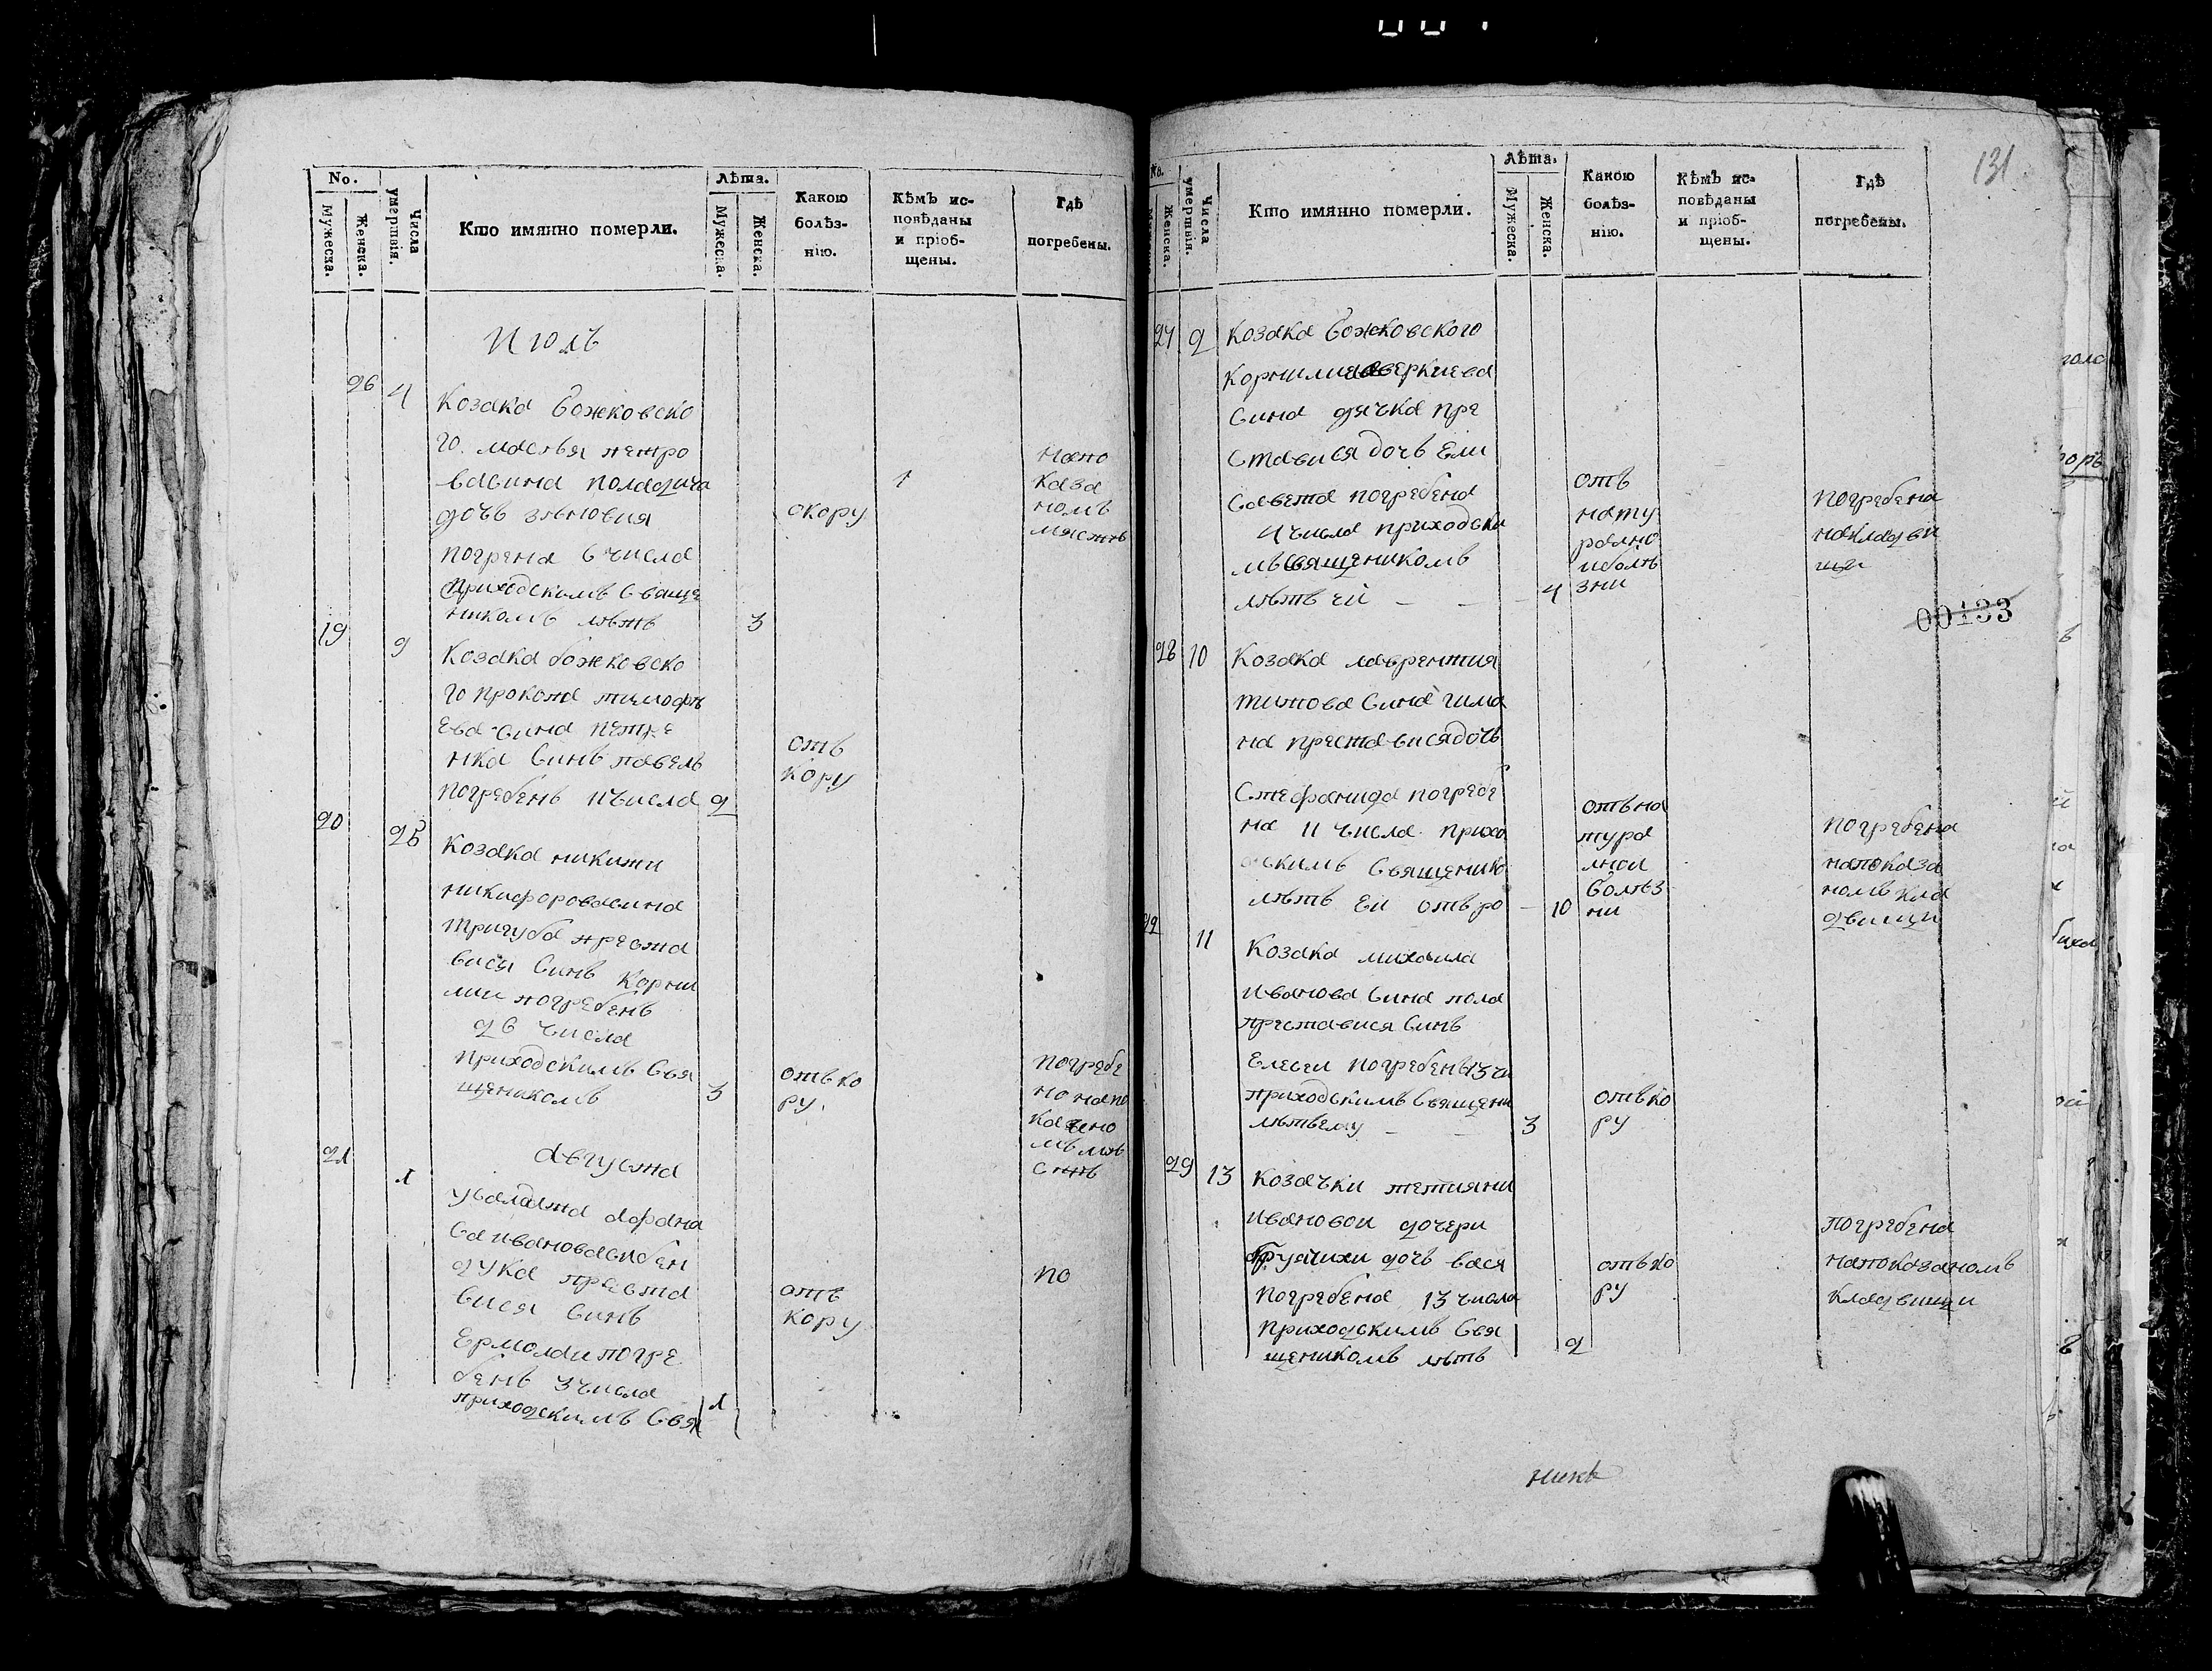 No.
Мужеска.
Женска.
Числа умертвія.
Кто имянно померли.
Лѣта.
Мужеска.
Женска.
Какою болѣз-
нію.
Кѣмъ ис-
повѣданы
и пріоб-
щены.
Гдѣ
погребены.
Июль
26 4 козака божковско
го
дочь зѣновия
погрена 6 числа
приходскимъ свяще
никомъ лѣтъ 3
скору
1
напо
каза
номъ
мѣстѣ
19 9 козака божковско
го прокопа тимофѣ
ева сина петре
нка синъ павелъ
погребенъ 11 числа 2
отъ
кору
20 25 козака никити
никифорова сина
тригуба преста
вися синъ корни
лии погребенъ
26 числа
приходскимъ свя
щеникомъ 3
отъ ко
ру.
погребе
но напо
мъ мѣ
стѣ
августа
21 1
са иванова
дука преста
вися синъ
ермолаи погре
бенъ 3 числа
приходскимъ свя 1
отъ
кору
по
131
No.
Женска.
Числа умертвія.
Кто имянно померли.
Лѣта.
Мужеска.
Женска.
Какою
болѣз-
нію.
Кѣмъ ис-
повѣданы
и пріоб-
щены.
Гдѣ
погребены.
27 2 козака божковского
корнилия аверкиева
сина дячка пре
ставися дочь ели
савета погребена
4 числа приходски
мъ священикомъ
лѣтъ еи - - 4
отъ
нату
ралнои
болѣ
зни
погребена
на кладви
щи
00133
28 10 козака лаврентия
титова сина гима
на преставися дочь
стефанида погребе
на 11 числа прихо
дскимъ священико
лѣтъ еи отъ ро - 10
отъ на
тура
лнои
болѣз
ни
погребена
на показа
номъ кла
двищи
22 11 козака михаила
иванова сина пола
преставися синъ
елесеи погребенъ 13 чи
приходскимъ священи
лѣтъ ему - - 3
отъ ко
ру
29 13 козачки тетияни
ивановои дочери
дочь вася
погребена 13 числа
приходскимъ свя
щеникомъ лѣтъ 2
отъ ко
ру
погребена
на показаномъ
кладвищи
никъ